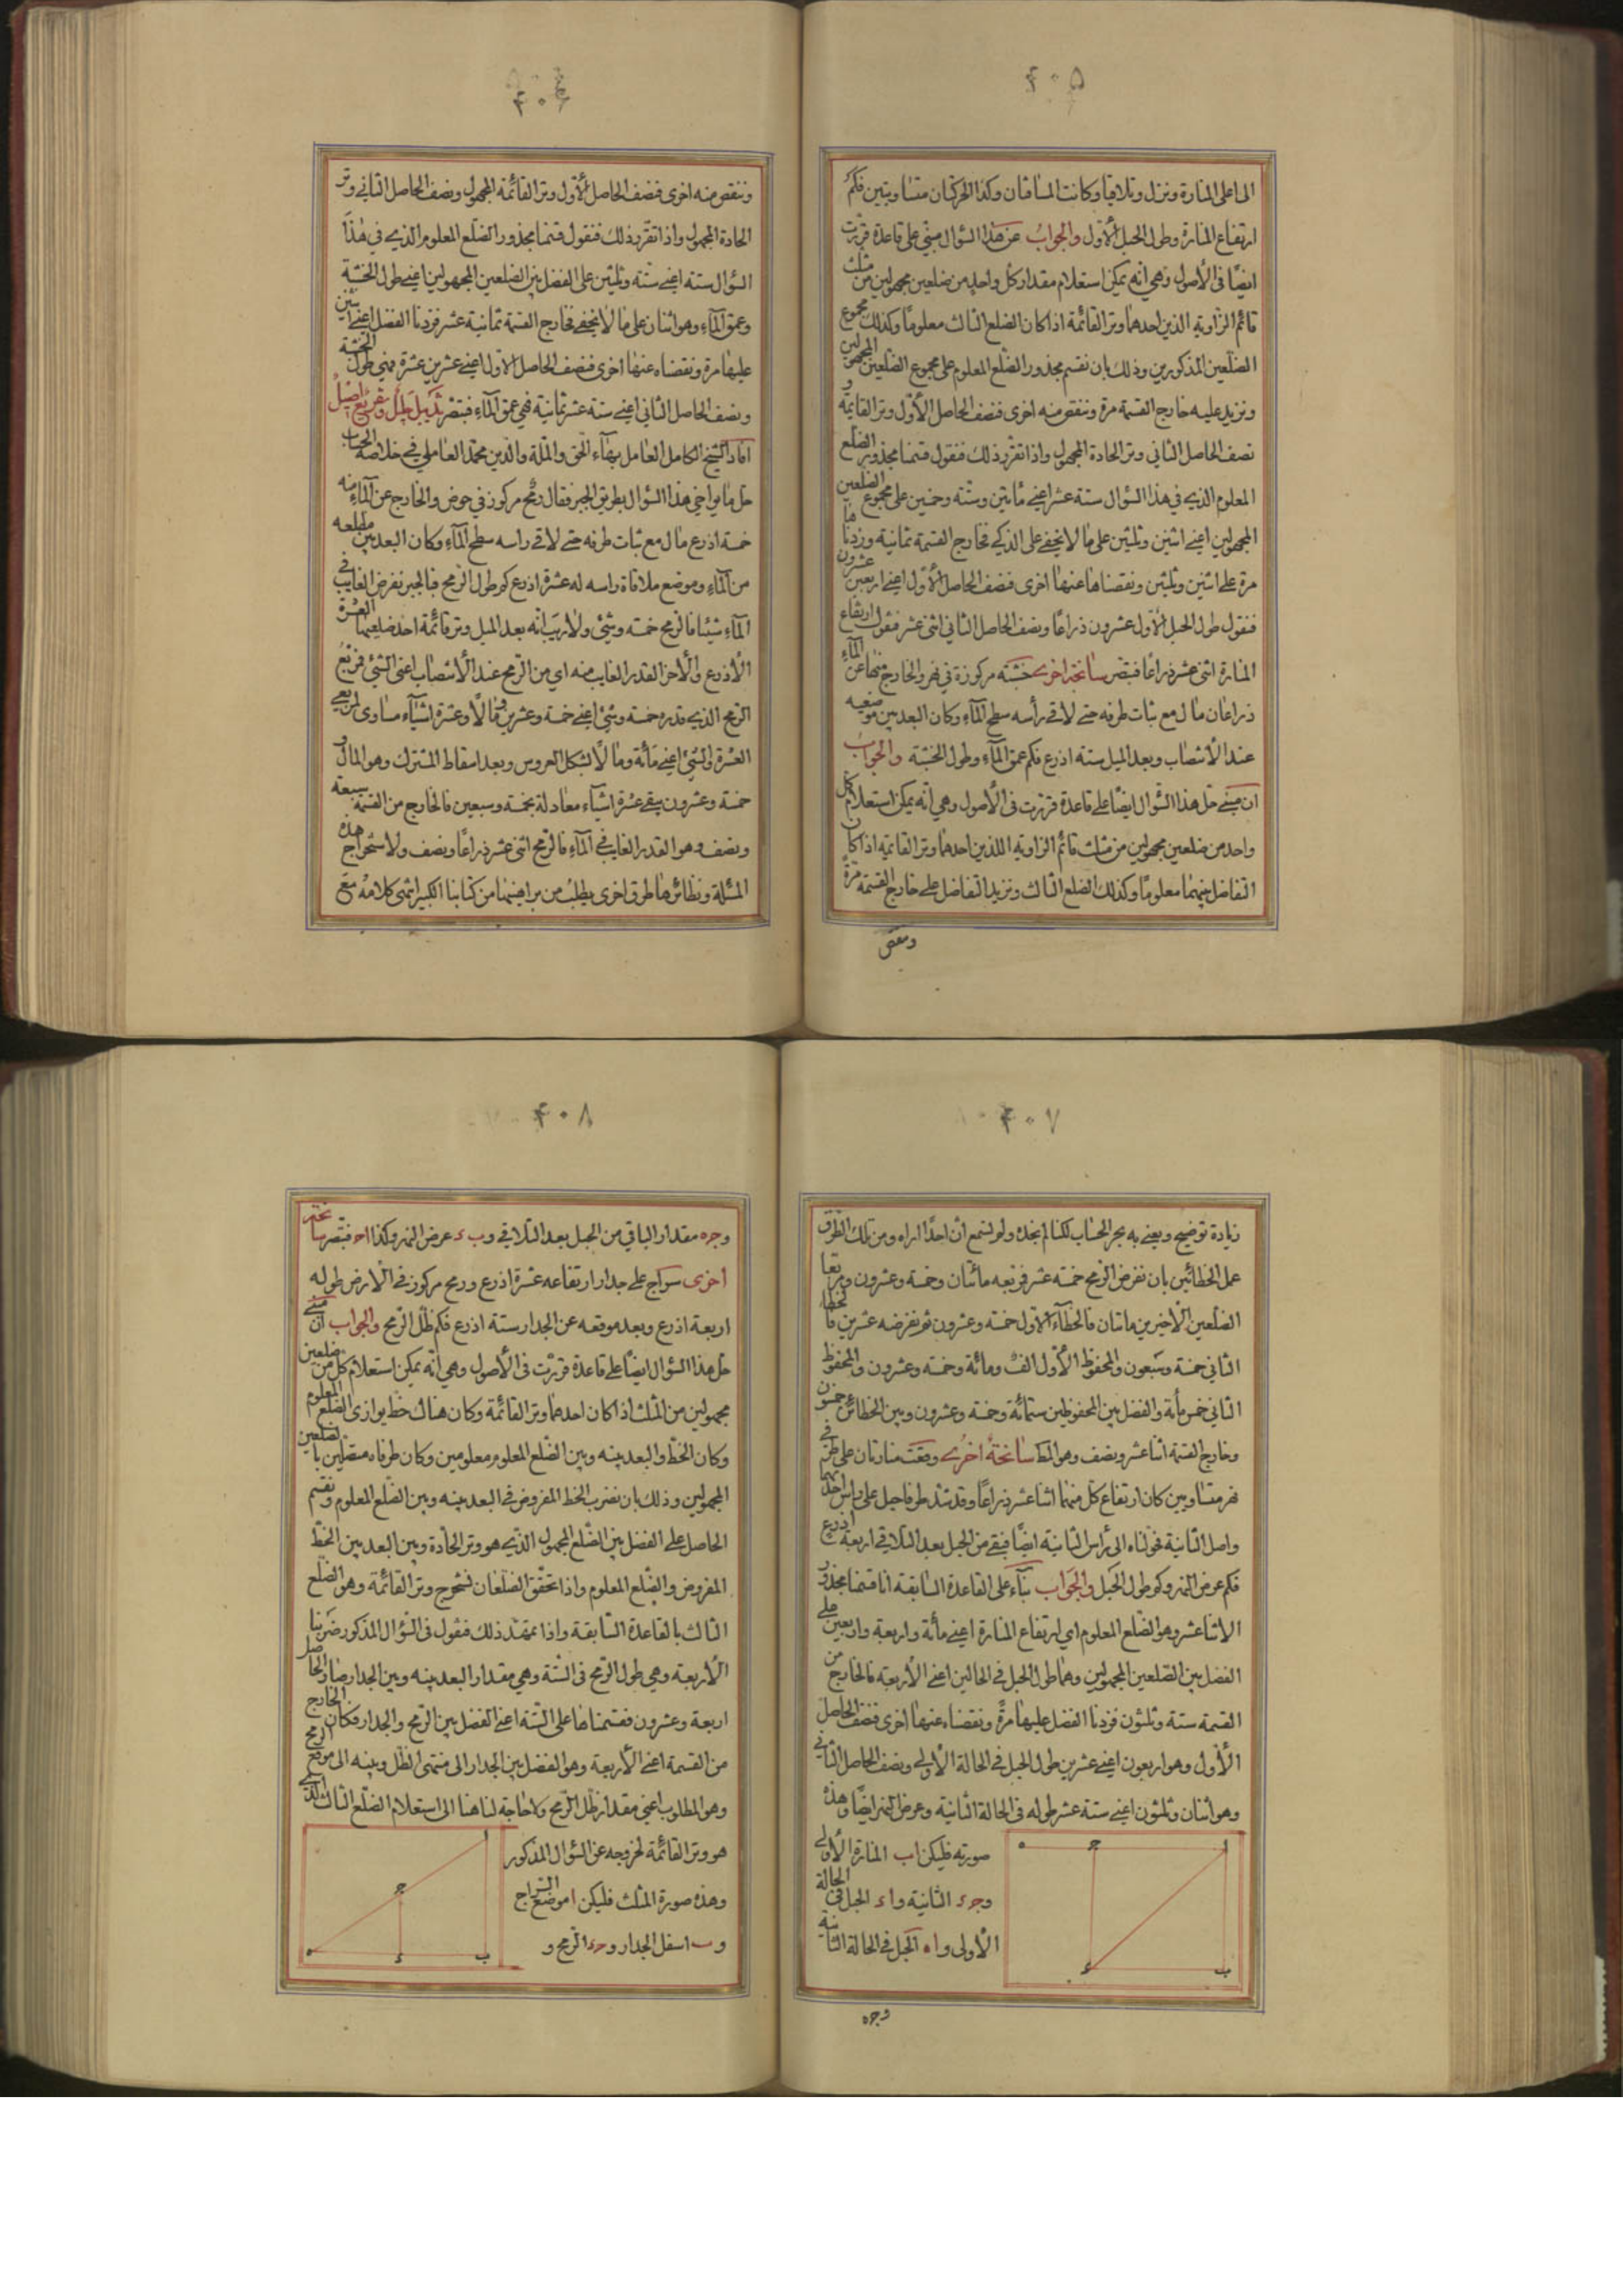 ٤٠٥
الماء على المنارة ونزل وتلاقيا وكانت المسافتان وكذا الحركتان متساويتين فكم
ارتفاع المنارة وطول الحبل الأول والجواب عن هذا السؤال مبني على قاعدة قررت
ايضا في الأصول وهي انه يمكن استعلام مقدار كل واحد من ضلعين مجهولين من مثلث
قائم الزاوية الذين احدهما وتر القائمة اذا كان الضلع الثالث معلوما وكذلك مجموع
الضلعين المذكورين وذلك بان نقسم مجذور الضلع المعلوم على مجموع الضلعين المجهولين
ونزيد عليه خارج القسمة مرة وننقص منه اخرى فنصف الحاصل الأول وتر القايمة و
نصف الحاصل الثاني وتر الحادة المجهول واذا تقرر ذلك فنقول قسمنا مجذور الضلع
المعلوم الذي في هذا السؤال ستة عشر اعني مأتين وستة وخمسين على مجموع الضلعين
المجهولين اعني اثنين وثلثين على ما لا يخفى على الذكي فخارج القسمة ثمانية وزدنا ها
مرة على اثنين وثلثين ونقصناها عنها اخرى فنصف الحاصل الأول اعني اربعين عشرون
فنقول طول الحبل الأول عشرون ذراعا ونصف الحاصل الثاني اثنى عشر فنقول ارتفاع
المنارة اثنى عشر ذراعا فتبصر سانحة اخرى خشبة مركوزة في نهر والخارج منها عن الماء
ذراعان مال مع ثبات طرفه حتى لاقى رأسه سطح الماء وكان البعد بين موضعيه
عند الأنتصاب وبعد الميل ستة اذرع فكم عمق الماء وطول الخشبة والجواب
ان مبنى حل هذا السؤال ايضا على قاعدة قررت في الأصول وهي انه يمكن استعلام كل
واحد من ضلعين مجهولين من مثلث قائم الزاوية اللذين احدهما وتر القائمة اذا كان
التفاضل بينهما معلوما وكذلك الضلع الثالث ونزيد التفاضل على خارج القسمة مرة
وننقص
٤٠٦
وننقص منه اخرى فنصف الحاصل الأول وتر القائمة المجهول ونصف الحاصل الثاني وتر
الحادة المجهول واذا تقرر ذلك فنقول قسمنا مجذور الضلع المعلوم الذي في هذا
السؤال ستة اعني ستة وثلثين على الفضل بين الضلعين المجهولين اعني طول الخشبة
وعمق الماء وهو اثنان على ما لا يخفى فخارج القسمة ثمانية عشر فزدنا الفضل اعني اثنين
عليها مرة ونقصناه عنها اخرى فنصف الحاصل الأول اعني عشرين عشرة فهي طول الخشبة
ونصف الحاصل الثاني اعني ستة عشر ثمانية فهي عمق الماء فتبصر تذييل جليل وتفريع اصيل
افاد الشيخ الكامل العامل بهاء الحق والملة والدين محمد العاملي في خلاصة الحساب
حل ما يواخي هذا السؤال بطريق الجبر فقال رمح مركوز في حوض والخارج عن الماء منه
خمسة اذرع مال مع ثبات طرفه حتى لاقى راسه سطح الماء وكان البعد بين مطلعه
من الماء وموضع ملاقاة راسه له عشرة اذرع كم طول الرمح فبالجبر نفرض الغايب في
الماء شيئا فالرمح خمسة وشئ ولا ريب انه بعد الميل وتر قائمة احد ضلعيها العشرة
الأذرع والأخر القدر الغايب منه اي من الرمح عند الأنتصاب اعني الشئ فربع
الرمح الذي قدره خمسة وشئ اعني خمسة وعشرين ومالا وعشرة اشياء مساوى لمربعي
العشرة والشئ اعني مأئة ومالا بشكل العروس وبعد اسقاط المشترك وهو المال و
خمسة وعشرون يبقى عشرة اشياء معادلة بخمسة وسبعين فالخارج من القسمة سبعة
ونصف وهو القدر الغايب في الماء فالرمح اثنى عشر ذراعا ونصف ولاستخراج هذه
المسئلة ونظائرها طرق اخرى يطلب من براهينها من كتابنا الكبير انتهى كلامه مع
٤٠٧
زيادة توضيح ويعني به بحر الحساب لكنا لم نجده ولم نسمع ان احدا اراه ومن تلك الطرق
عمل الخطائين بان نفرض الرمح خمسة عشر فربعه مائتان وخمسة وعشرون ومربعا
الضلعين الأخيرين مائتان فالخطاء الأول خمسة وعشرون ثم نفرضه عشرين فالخطاء
الثاني خمسة وسبعون والمحفوظ الأول الف ومائة وخمسة وعشرون والمحفوظ
الثاني خمس مأة والفضل بين المحفوظين ستمائة وخمسة وعشرون وبين الخطائين خمسون
وخارج القسمة اثنا عشر ونصف وهو المط سانحة اخرى وقعت منارتان على طرفي
نهر متساويين كان ارتفاع كل منهما اثنا عشر ذراعا وقد شد طرفا حبل على راس احدهما
واصل الثانية فحولناه الى رأس الثانية ايضا فبقي من الحبل بعد التلاقي اربعة اذرع
فكم عرض النهر وكم طول الحبل والجواب بناء على القاعدة السابقة انا قسمنا مجذور
الاثنا عشر وهو الضلع المعلوم اي ارتفاع المنارة اعني مأئة واربعة واربعين على
الفضل بين الضلعين المجهولين وهما طول الحبل في الحالين اعني الأربعة فالخارج من
القسمة ستة وثلثون فزدنا الفضل عليها مرة ونقصناه عنها اخرى فنصف الحاصل
الأول وهو اربعون اعني عشرين طول الحبل في الحالة الأولى ونصف الحاصل الثاني
وهو اثنان وثلثون اعني ستة عشر طوله في الحالة الثانية وعرض النهر ايضا وهذه
صورته فليكن اب المنارة الأولى
وجء الثانية واء الحبل في الحالة
الأولى واه الحبل في الحالة الثانية
ا
ج
ه
ب
ء
وجه
٤٠٨
وجه مقدار الباقي من الحبل بعد التلاقي وبء عرض النهر وكذا اجـ فتبصر سانحة
اخرى سراج على جدار ارتفاعه عشرة اذرع ورمح مركوز في الأرض طوله
اربعة اذرع وبعد موقعه عن الجدار ستة اذرع فكم ظل الرمح والجواب ان مبنى
حل هذا السؤال ايضا على قاعدة قررت في الأصول وهي انه يمكن استعلام كل من ضلعين
مجهولين من المثلث اذا كان احدهما وتر القائمة وكان هناك خط يوازى الضلع المعلوم
وكان الخط والبعد بينه وبين الضلع المعلوم معلومين وكان طرفاه متصلين بالضلعين
المجهولين وذلك بان نضرب الخط المفروض في البعد بينه وبين الضلع المعلوم ونقسم
الحاصل على الفضل بين الضلع المجهول الذي هو وتر الحادة وبين البعد بين الخط
المفروض والضلع المعلوم واذا تحقق الضلعان نستخرج وتر القائمة وهو الضلع
الثالث بالقاعدة السابقة واذا تمهد ذلك فنقول في السؤال المذكور ضربنا
الأربعة وهي طول الرمح في الستة وهي مقدار البعد بينه وبين الجدار صار الحاصل
اربعة وعشرون فقسمناها على الستة اعني الفضل بين الرمح والجدار فكان الخارج
من القسمة اعني الأربعة وهو الفضل بين الجدار الى منتهى الظل وبينه الى موقع الرمح
وهو المطلوب اعني مقدار ظل الرمح ولا حاجة لنا هنا الى استعلام الضلع الثالث الذي
هو وتر القائمة لخروجه عن السؤال المذكور
وهذه صورة المثلث فليكن ا موضع السراج
وب اسفل الجدار وجء الرمح و
ا
ج
ه
ء
ب